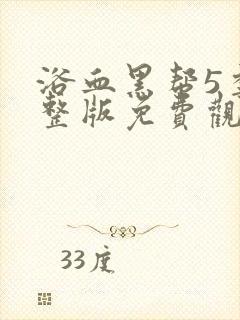 浴血黑帮5季
整版免費觀
33度